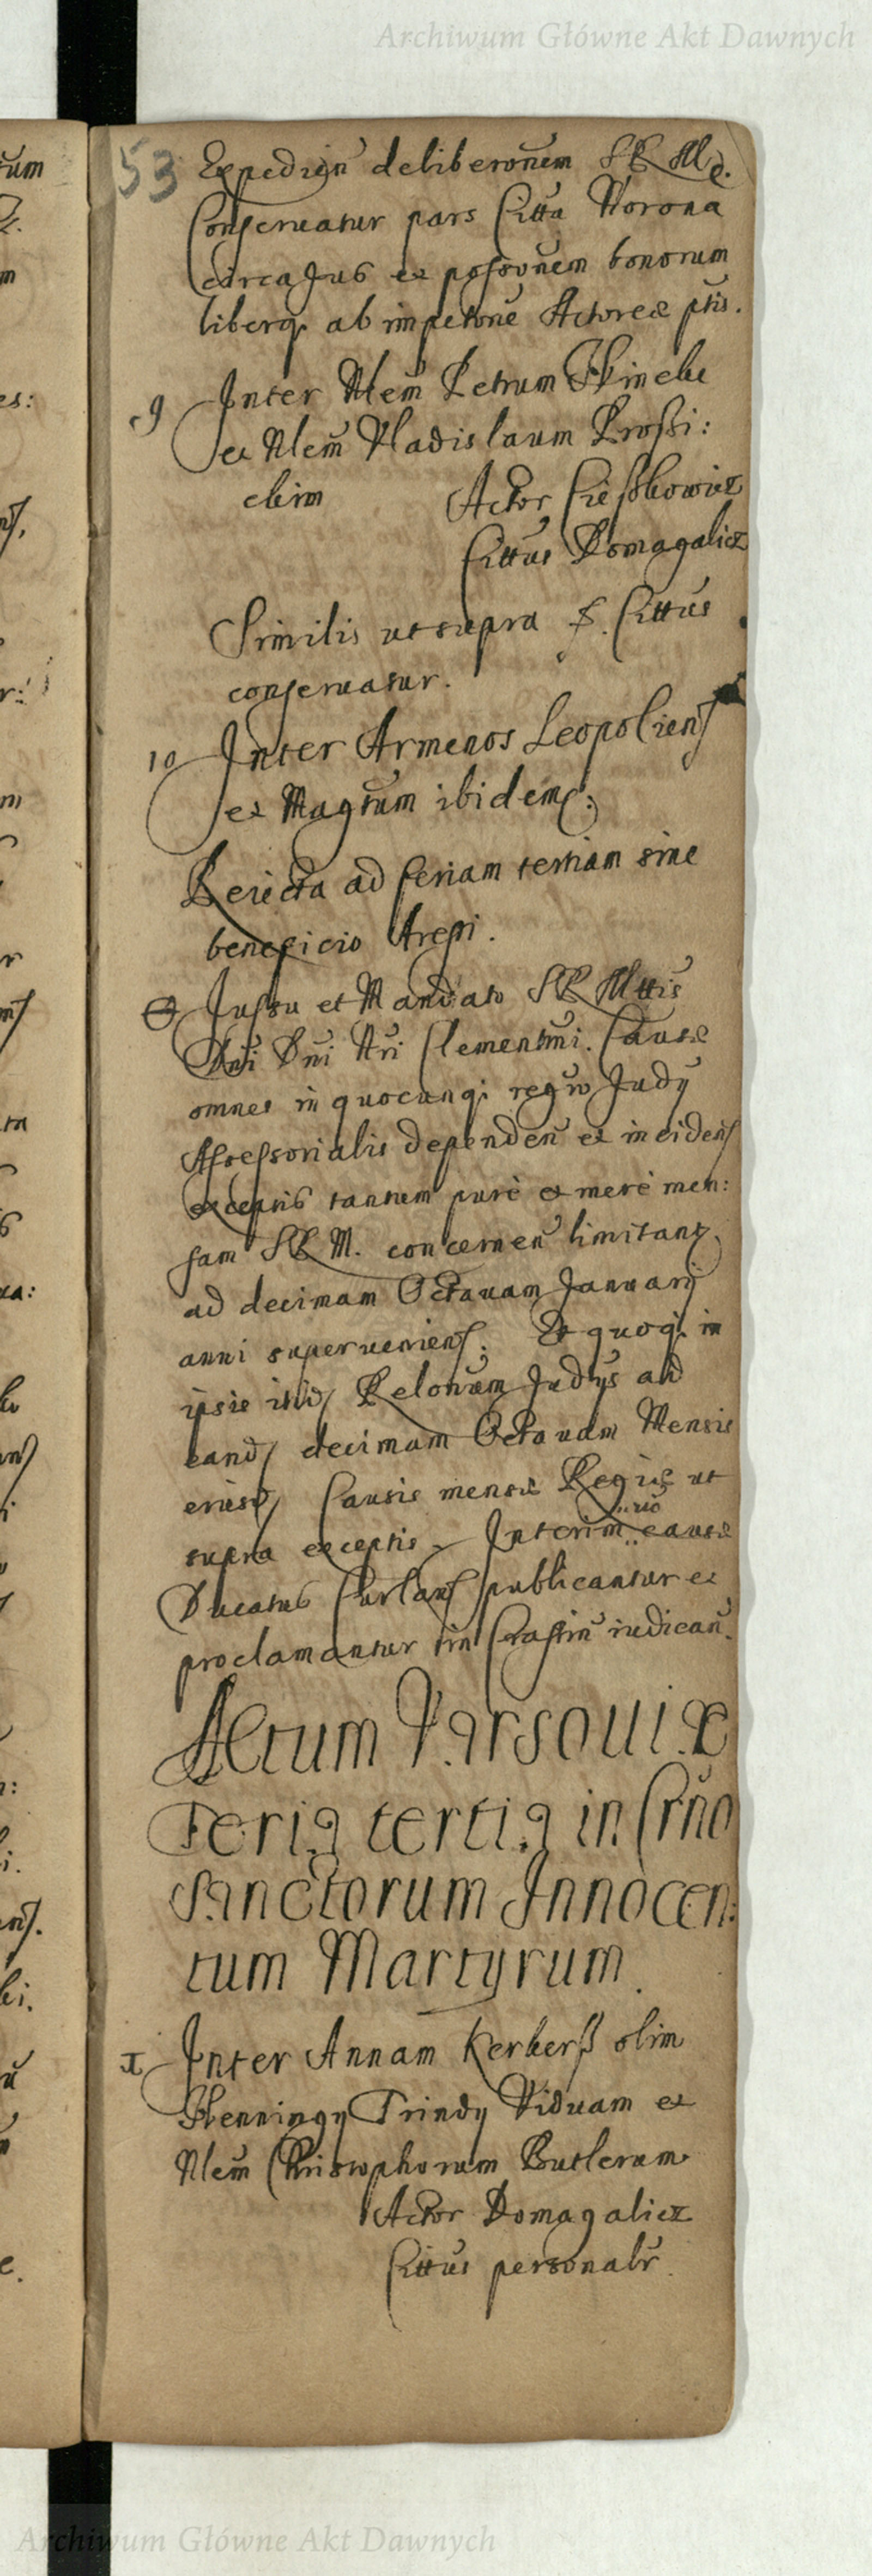 Archiwum Główne Akt Dawnych
53 Expedien deliberonem S R M
Conseruatur pars Citta Worona
circa Jus et possonem bonorum
liberq ab impetone Actoreæ ptis.
9 Inter Nlem Petrum
et Nlem Vladislaum Prossi:
ckim Actor Cieszkowicz
Cittus Domagalicz
Similis ut supra S. Cittus
conseruatur.
10 Inter Armenos Leopoliens
et Magtum ibidem:
Reiecta ad feriam tertiam sine
beneficio Aresti.
Jussu et Mandato S R Mttis
Dni Dni Nri Clementmi. Causæ
omnes in quocunq regro Judy
Assessorialis dependen et inciden
exceptis tantum purè et merè men:
sam S R M. concernen limitant
ad decimam Octauam Januarij
anni superueniens. Et quoq in
ipsis itid Relonum Judijs ad
eand decimam Octauam Mensis
eiusd Causis mensæ Regiæ ut
supra exceptis Interim causæ
Ducatus Curlans publicantur et
proclamantur in Crastin iudican.
Actum Varsouiæ
Feria tertia in Crno
Sanctorum Innocen:
tum Martyrum.
1 Inter Annam Kerkerß olim
Henningy Trindy Viduam et
Nlem Christophorum Butleram
Actor Domagalicz
Cittus personalr.
Archiwum Główne Akt Dawnych